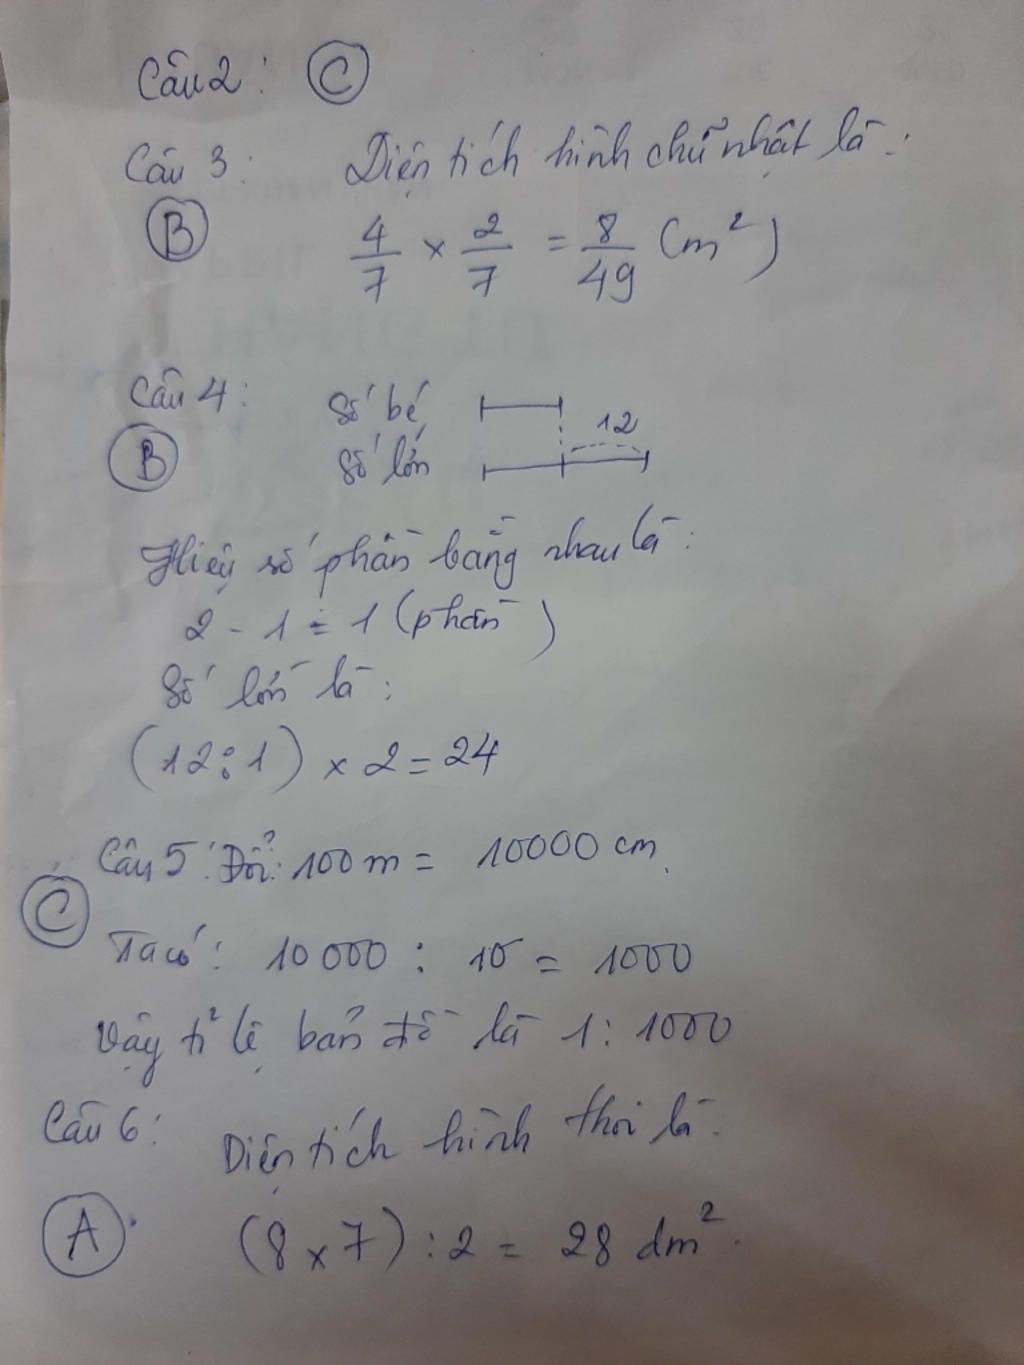 Câu 2: C
Câu 3: Diện tích hình chữ nhật là:
B
4/7 × 2/7 = 8/49 (m²)
Câu 4: Số bé
12
B Số lớn
Hiệu số phần bằng nhau là:
2 - 1 = 1 (phần)
Số lớn là:
(12 : 1) × 2 = 24
Câu 5: Đổi: 100 m = 10000 cm.
C
Ta có: 10 000 : 10 = 1000
Vậy tỉ lệ bản đồ là 1 : 1000
Câu 6: Diện tích hình thoi là:
A. (8 × 7) : 2 = 28 dm².